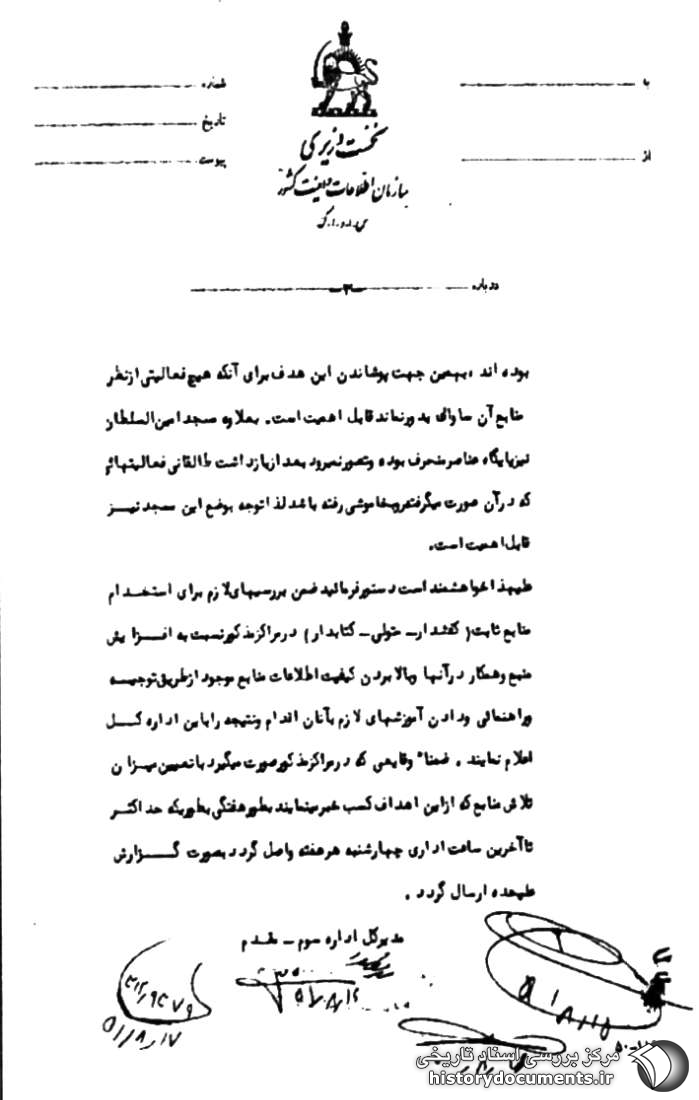 شماره
به
تاریخ
از
پیوست
نخست وزیری
سازمان اطلاعات و امنیت کشور
س.ا.و.ا.ک
درباره
-۲-
بوده اند ، بهمین جهت پوشاندن این هدف برای آنکه هیچ فعالیتی از نظر
منابع آن ساواک بدور نماند قابل اهمیت است. بعلاوه مسجد امین السلطان
نیز پایگاه عناصر منحرف بوده و تصور نمیرود بعد از بازداشت طالقانی فعالیتهائی
که در آن صورت میگرفته رو بخاموشی رفته باشد لذا توجه بوضع این مسجد نیز
قابل اهمیت است.
علیهذا خواهشمند است دستور فرمائید ضمن بررسیهای لازم برای استخدام
منابع ثابت ( کفشدار - متولی - کتابدار ) در مراکز مذکور نسبت به افزایش
منبع و همکار در آنها و بالا بردن کیفیت اطلاعات منابع موجود از طریق توجیه
و راهنمائی و دادن آموزشهای لازم بآنان اقدام و نتیجه را باین اداره کل
اعلام نمایند . ضمناً وقایعی که در مراکز مذکور صورت میگیرد با تعیین میزان
تلاش منابع که از این اهداف کسب خبر مینمایند بطور هفتگی بطوریکه حداکثر
تا آخرین ساعت اداری چهارشنبه هر هفته واصل گردد بصورت گزارش
علیحده ارسال گردد .
مدیرکل اداره سوم - مقدم
۵۱/۸/۱۷
مرکز بررسی اسناد تاریخی
historydocuments.ir